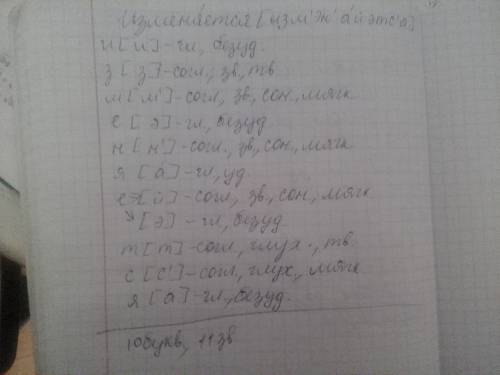 Изменяется [изм'эн'айэтс'а]
и [и] - гл, безуд.
з [з] - согл., зв, тв
м [м'] - согл, зв, сон., мягк
е [э] - гл, безуд
н [н'] - согл., зв., сон., мягк
я [а́] - гл, уд.
е → [й] - согл, зв, сон, мягк
↘ [э] - гл, безуд
т [т] - согл., глух., тв
с [с'] - согл, глух., мягк
я [а] - гл., безуд.
10букв, 11зв